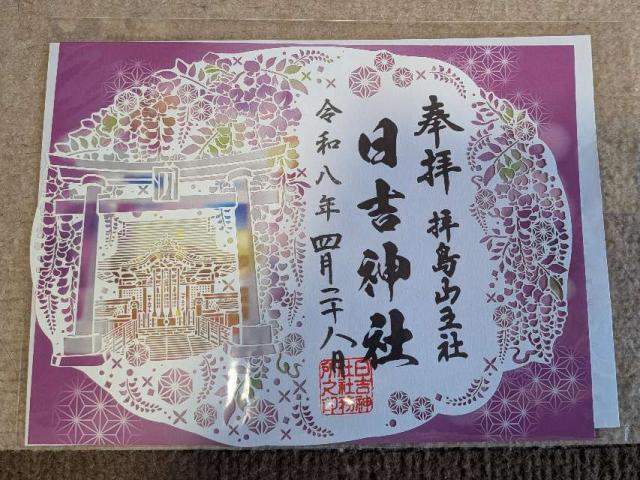 奉拝
拝島山王社
日吉神社
令和八年 四月二十八日
日吉神
社社務
所之印